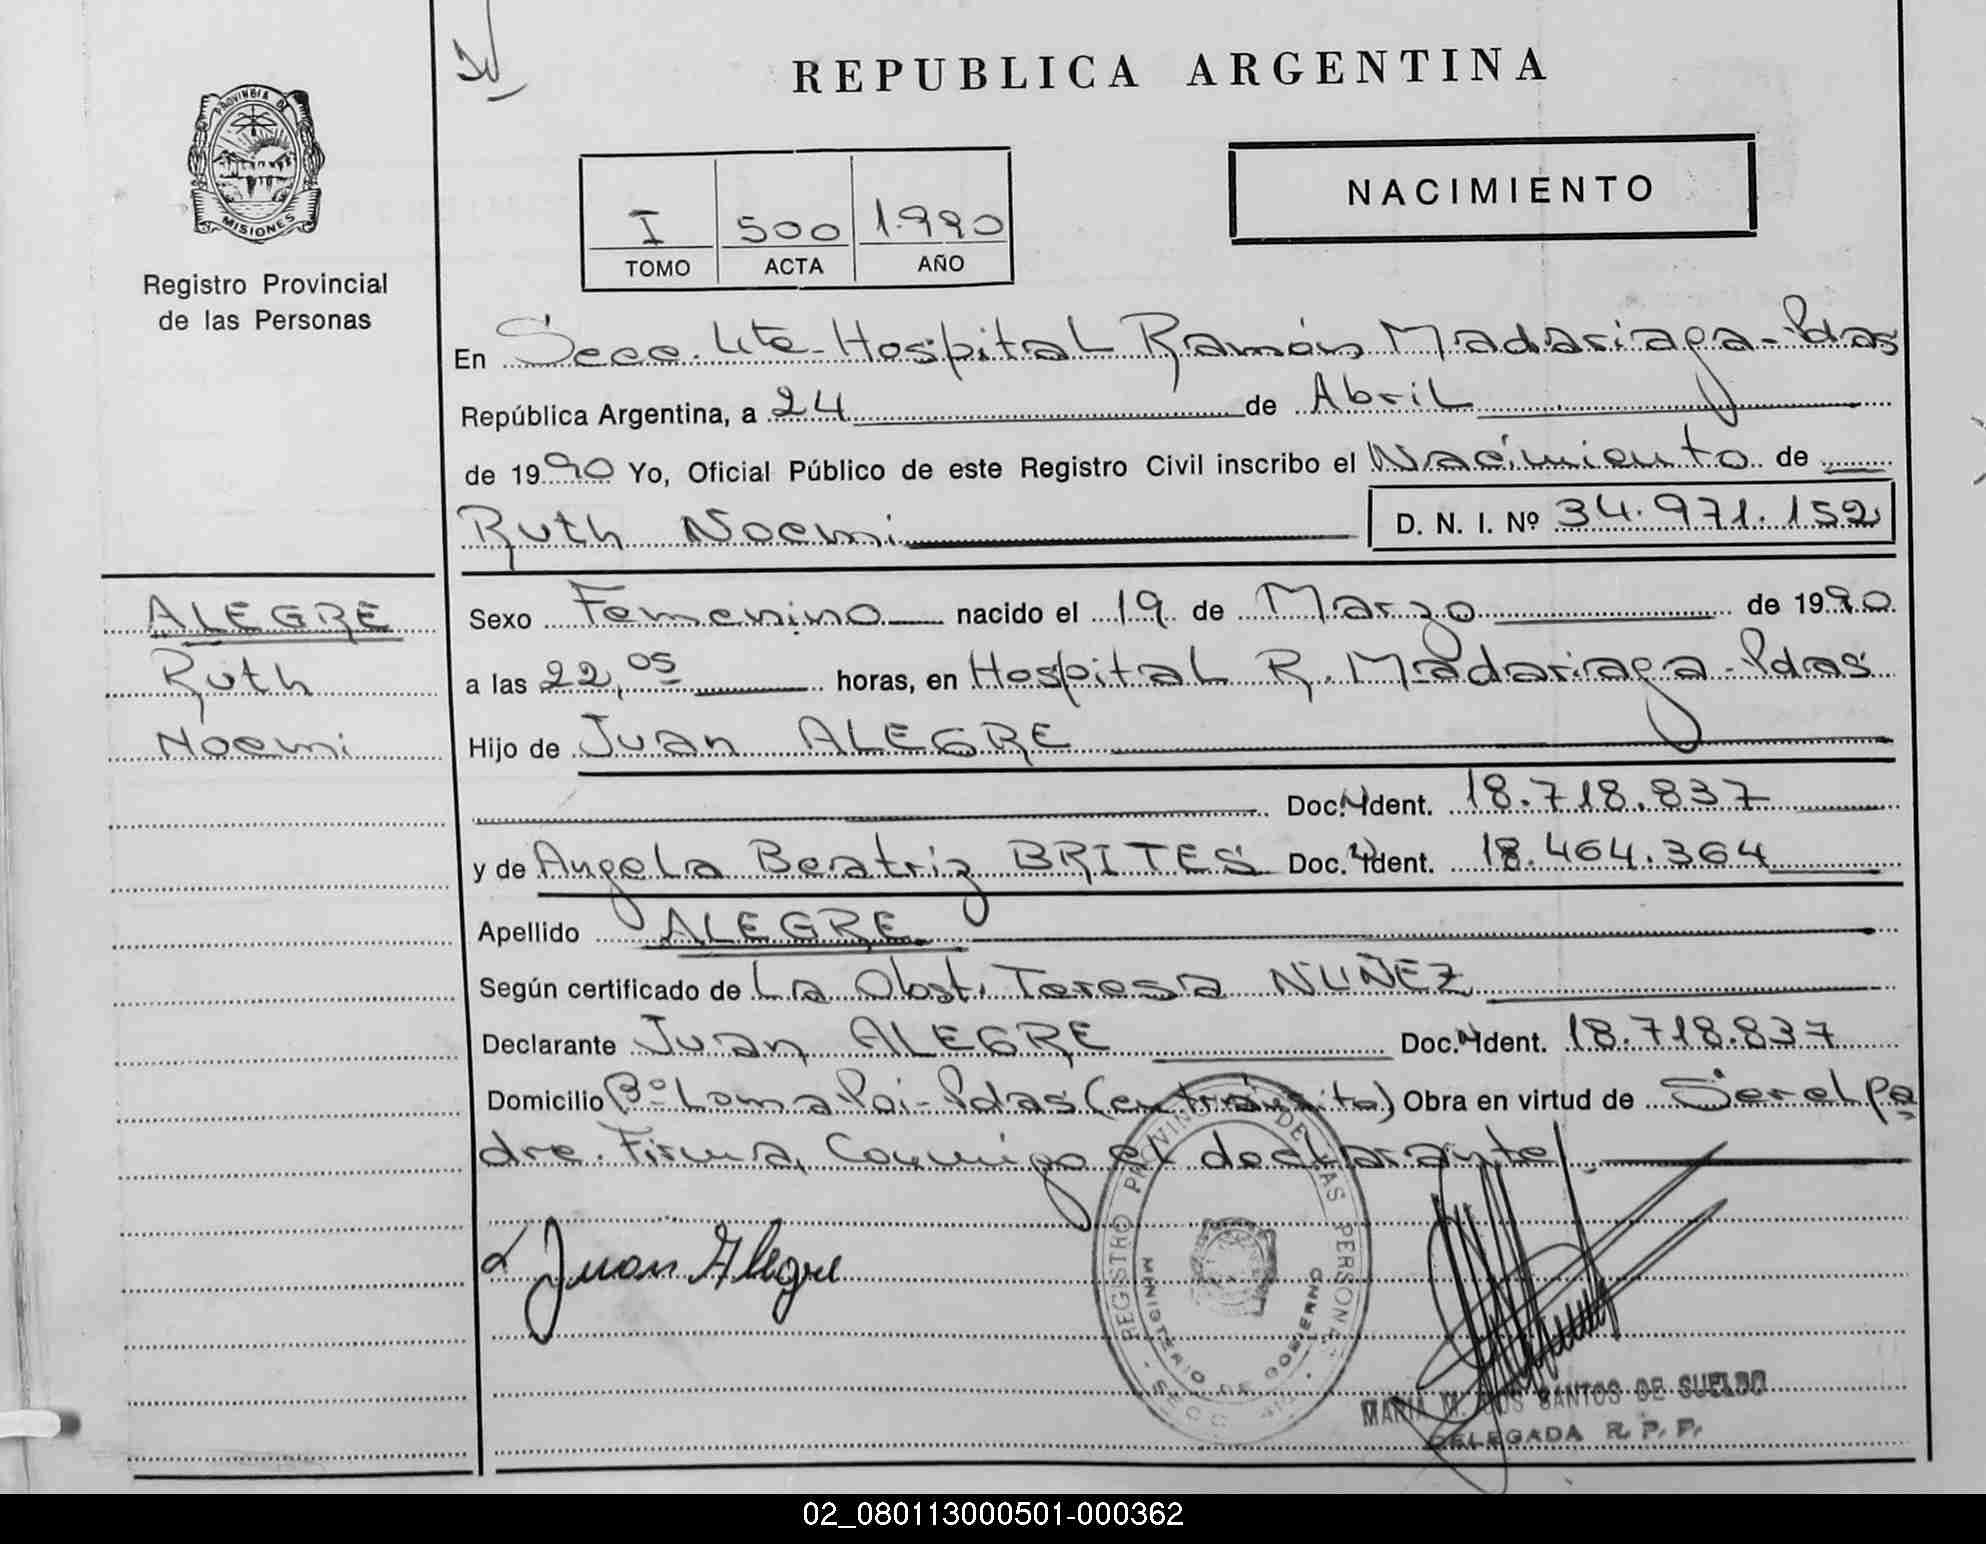 REPUBLICA ARGENTINA
PROVINCIA DE
MISIONES
Registro Provincial
de las Personas
I 500 1.990
TOMO ACTA AÑO
NACIMIENTO
En Secc. 4ta-Hospital Ramón Madariaga-Pdas
República Argentina, a 24 de Abril
de 1990 Yo, Oficial Público de este Registro Civil inscribo el Nacimiento de
Ruth Noemi D. N. I. Nº 34.971.152
ALEGRE
Ruth
Noemi
Sexo Femenino nacido el 19 de Marzo de 1990
a las 22,05 horas, en Hospital R. Madariaga-Pdas
Hijo de Juan ALEGRE
Doc. Ident. 18.718.837
y de Angela Beatriz BRITES Doc. Ident. 18.464.364
Apellido ALEGRE
Según certificado de La Obst. Teresa NUÑEZ
Declarante Juan ALEGRE Doc. Ident. 18.718.837
Domicilio Bº Loma Poi-Pdas (en tránsito) Obra en virtud de Ser el pa
dre. Firma, Conmigo el declarante
Juan Alegre
REGISTRO PROVINCIAL DE LAS PERSONAS
MINISTERIO DE GOBIERNO
SECC. 4ta
MARIA M. DOS SANTOS DE SUELDO
DELEGADA R. P. P.
02_080113000501-000362